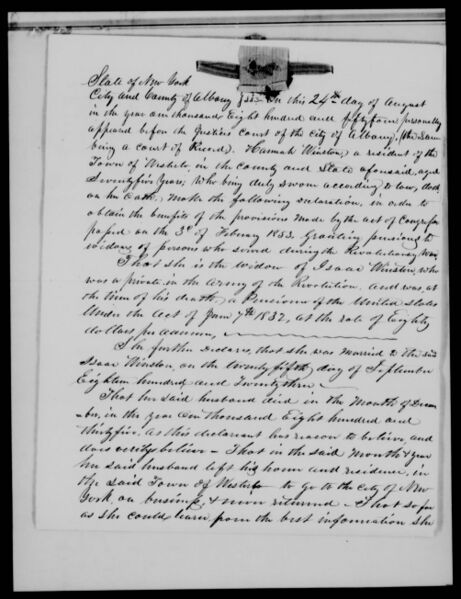 State of New York
City and County of Albany ss: On this 24th day of August
in the year one thousand Eight hundred and fiftyfour personally
appeared before the Justices Court of the City of Albany, (the same
being a court of Record). Hannah Winston, a resident of the
Town of Westerlo, in the County and State aforesaid, aged
Seventyfive Years, Who being duly sworn according to law, doth
on her Oath, make the following declaration, in order to
obtain the benefits of the provisions made by the act of Congress
passed on the 3d of February 1853. Granting pensions to
widows of persons who served during the Revolutionary War
That she is the widow of Isaac Winston, who
was a private in the Army of the Revolution, and was, at
the time of his death, a Pensioner of the United States
Under the Act of June 7th 1832, at the rate of Eighty
dollars per annum,
She further Declares, that she was Married to the said
Isaac Winston, on the twenty fifth, day of September
Eighteen hundred and Twentythree
That her said husband died in the Month of Decem
-ber, in the year one thousand Eight hundred and
thirtyfive, as this declarant has reason to believe, and
does verily believe - That in the said Month & year
her said husband left his home and residence, in
the said Town of Westerlo to go to the City of New
York on business, & never returned - That so far
as she could learn from the best information she